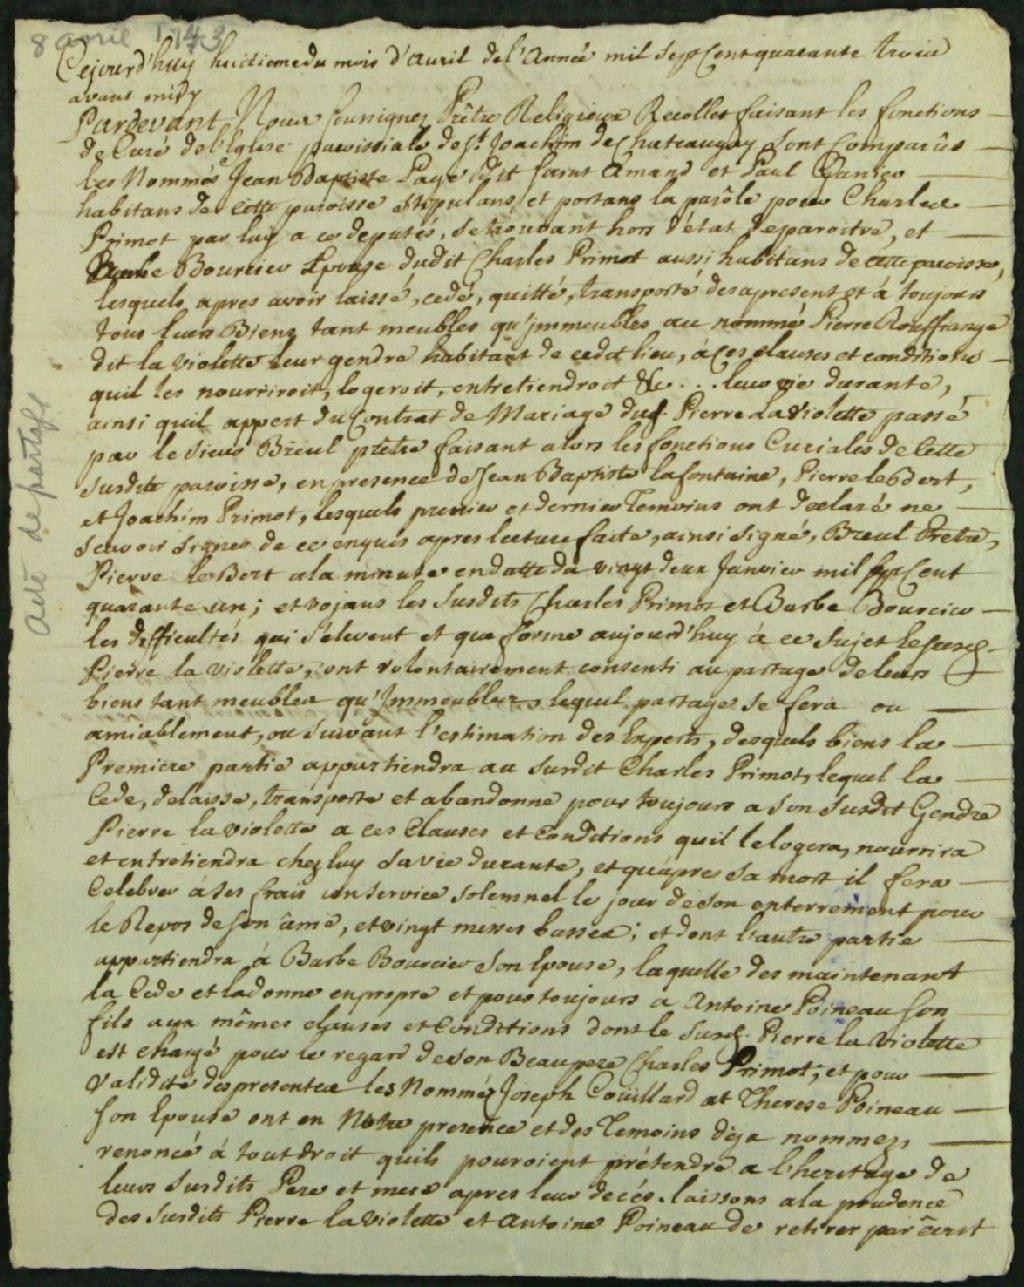 8 avril 1743
Cejourd'huy huitieme du mois d'Avril de l'Année mil sept Cent quarante trois
avant midy
Pardevant Nous Sousignez Prêtre Religieux Recollet faisant les fonctions
de Curé de l'Eglise paroissiale de St. Joachim de Chateaugay sont comparûs
les Nommés Jean Baptiste Payé dit saint Amand et Paul
habitans de cette paroisse Stipulans, et portans la parôle pour Charles
Primot par luy a ce deputés, se trouvant hors d'état de paroitre, et
Barbe Bourcier Epouse dudit Charles Primot aussi habitans de cette paroisse,
lesquels apres avoir laissé, cedé, quitté, transporté des apresent et à toujours
tous leurs Biens tant meubles qu'jmmeubles au nommé Pierre Rouffrange
dit la violette leur gendre habitant de cedt. lieu, à ces clauses et conditions
quil les nourriroit, logeroit, entretiendroit &c... leur vie durante,
ainsi quil appert du Contrat de Mariage dud. Pierre La Violette passé
par le Sieur Breul ptêtre faisant alors les fonctions Curiales de Cette
susdite paroisse, en presence de Jean Baptiste lafontaine, Pierre le Bert,
et Joachim Primot, lesquels premier et dernier Temoins ont declaré ne
scavoir signer de ce enquis apres lecture faite, ainsi signé, Breul Prêtre,
Pierre le Bert a la minute en datte du vingt deux Janvier mil sept Cent
quarante un; et vojans les susdits Charles Primot et Barbe Bourcier
les difficultés qui s'elevent et que forme aujourd'huy à ce sujet le susd.
Pierre la violette, ont volontairement consenti au partage de leurs
biens tant meubles qu'Jmmeubles, lequel partage se fera ou
amiablement, ou suivant l'estimation des Experts, desquels biens la
Premiere partie appartiendra au susdit Charles Primot, lequel la
Cede, delaisse, transporte et abandonne pour toujours a son susdit Gendre
Pierre la violette a ces Clauses et conditions quil le logera, nourrira
et entretiendra chez luy sa vie durante, et qu'apres sa mort il fera
Celebrer à ses frais un service solemnel le jour de son enterrement pour
le Repos de son âme, et vingt messes basses; et dont l'autre partie
appartiendra à Barbe Bourcier son Epouse, laquelle des maintenant
la Cede et la donne en propre et pour toujours a Antoine Poineau son
fils aux mêmes clauses et Conditions dont le susd. Pierre la Violette
est chargé pour le regard de son Beaupere Charles Primot, et pour
Validité des presentes les Nommés Joseph Coüillard et Therese Poineau
son Epouse ont en Notre presence et des Temoins déja nommez,
renoncé à tout droit quils pouroient prétendre a l'heritage de
leurs susdits Pere et mere apres leur decés. laissons a la prudence
des susdits Pierre la violette et Antoine Poineau de retirer par écrit
acte de partage